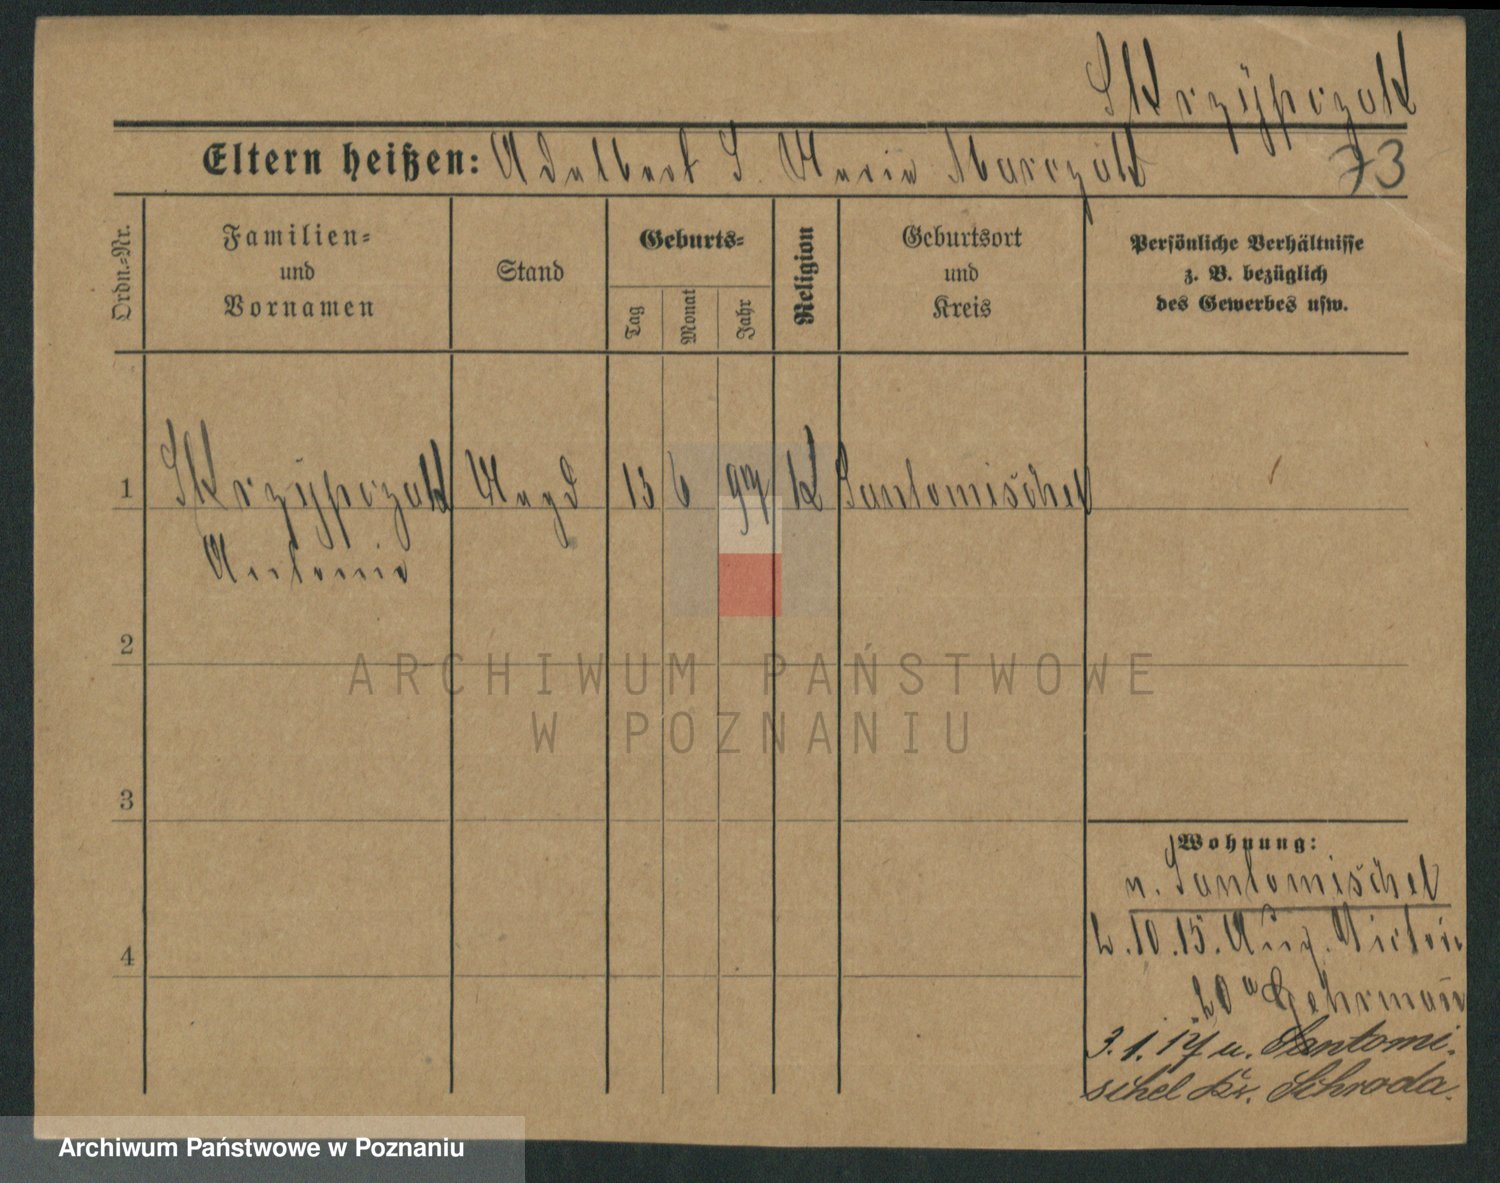 Skrzypczak
Eltern heißen: Adalbert S. Maria Marczak
73
Ordn.-Nr.
Familien-
und
Vornamen
Stand
Geburts-
Tag
Monat
Jahr
Religion
Geburtsort
und
Kreis
Persönliche Verhältnisse
z. B. bezüglich
des Gewerbes usw.
1 Skrzypczak Magd 15 6 97 K Santomischel
Antonie
2
3
4
Wohnung:
n. Santomischel
2.10.15. Aug. Victoria
20 a Gehrmann
3.1.17 n. Santomi-
schel Kr. Schroda.
ARCHIWUM PAŃSTWOWE
W POZNANIU
Archiwum Państwowe w Poznaniu